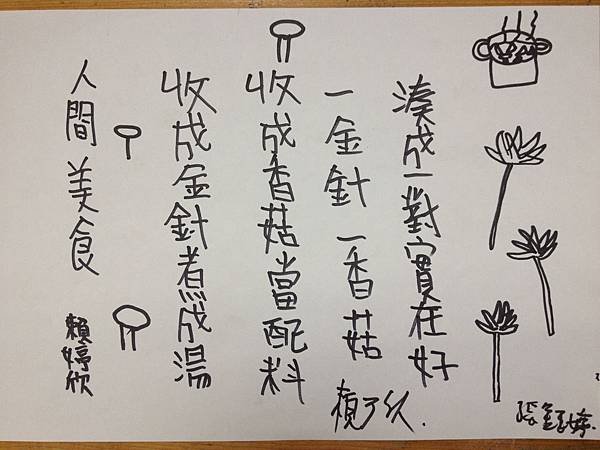 湊成一對實在好
一金針一香菇
收成香菇當配料
收成金針煮成湯
人間美食
賴婷欣